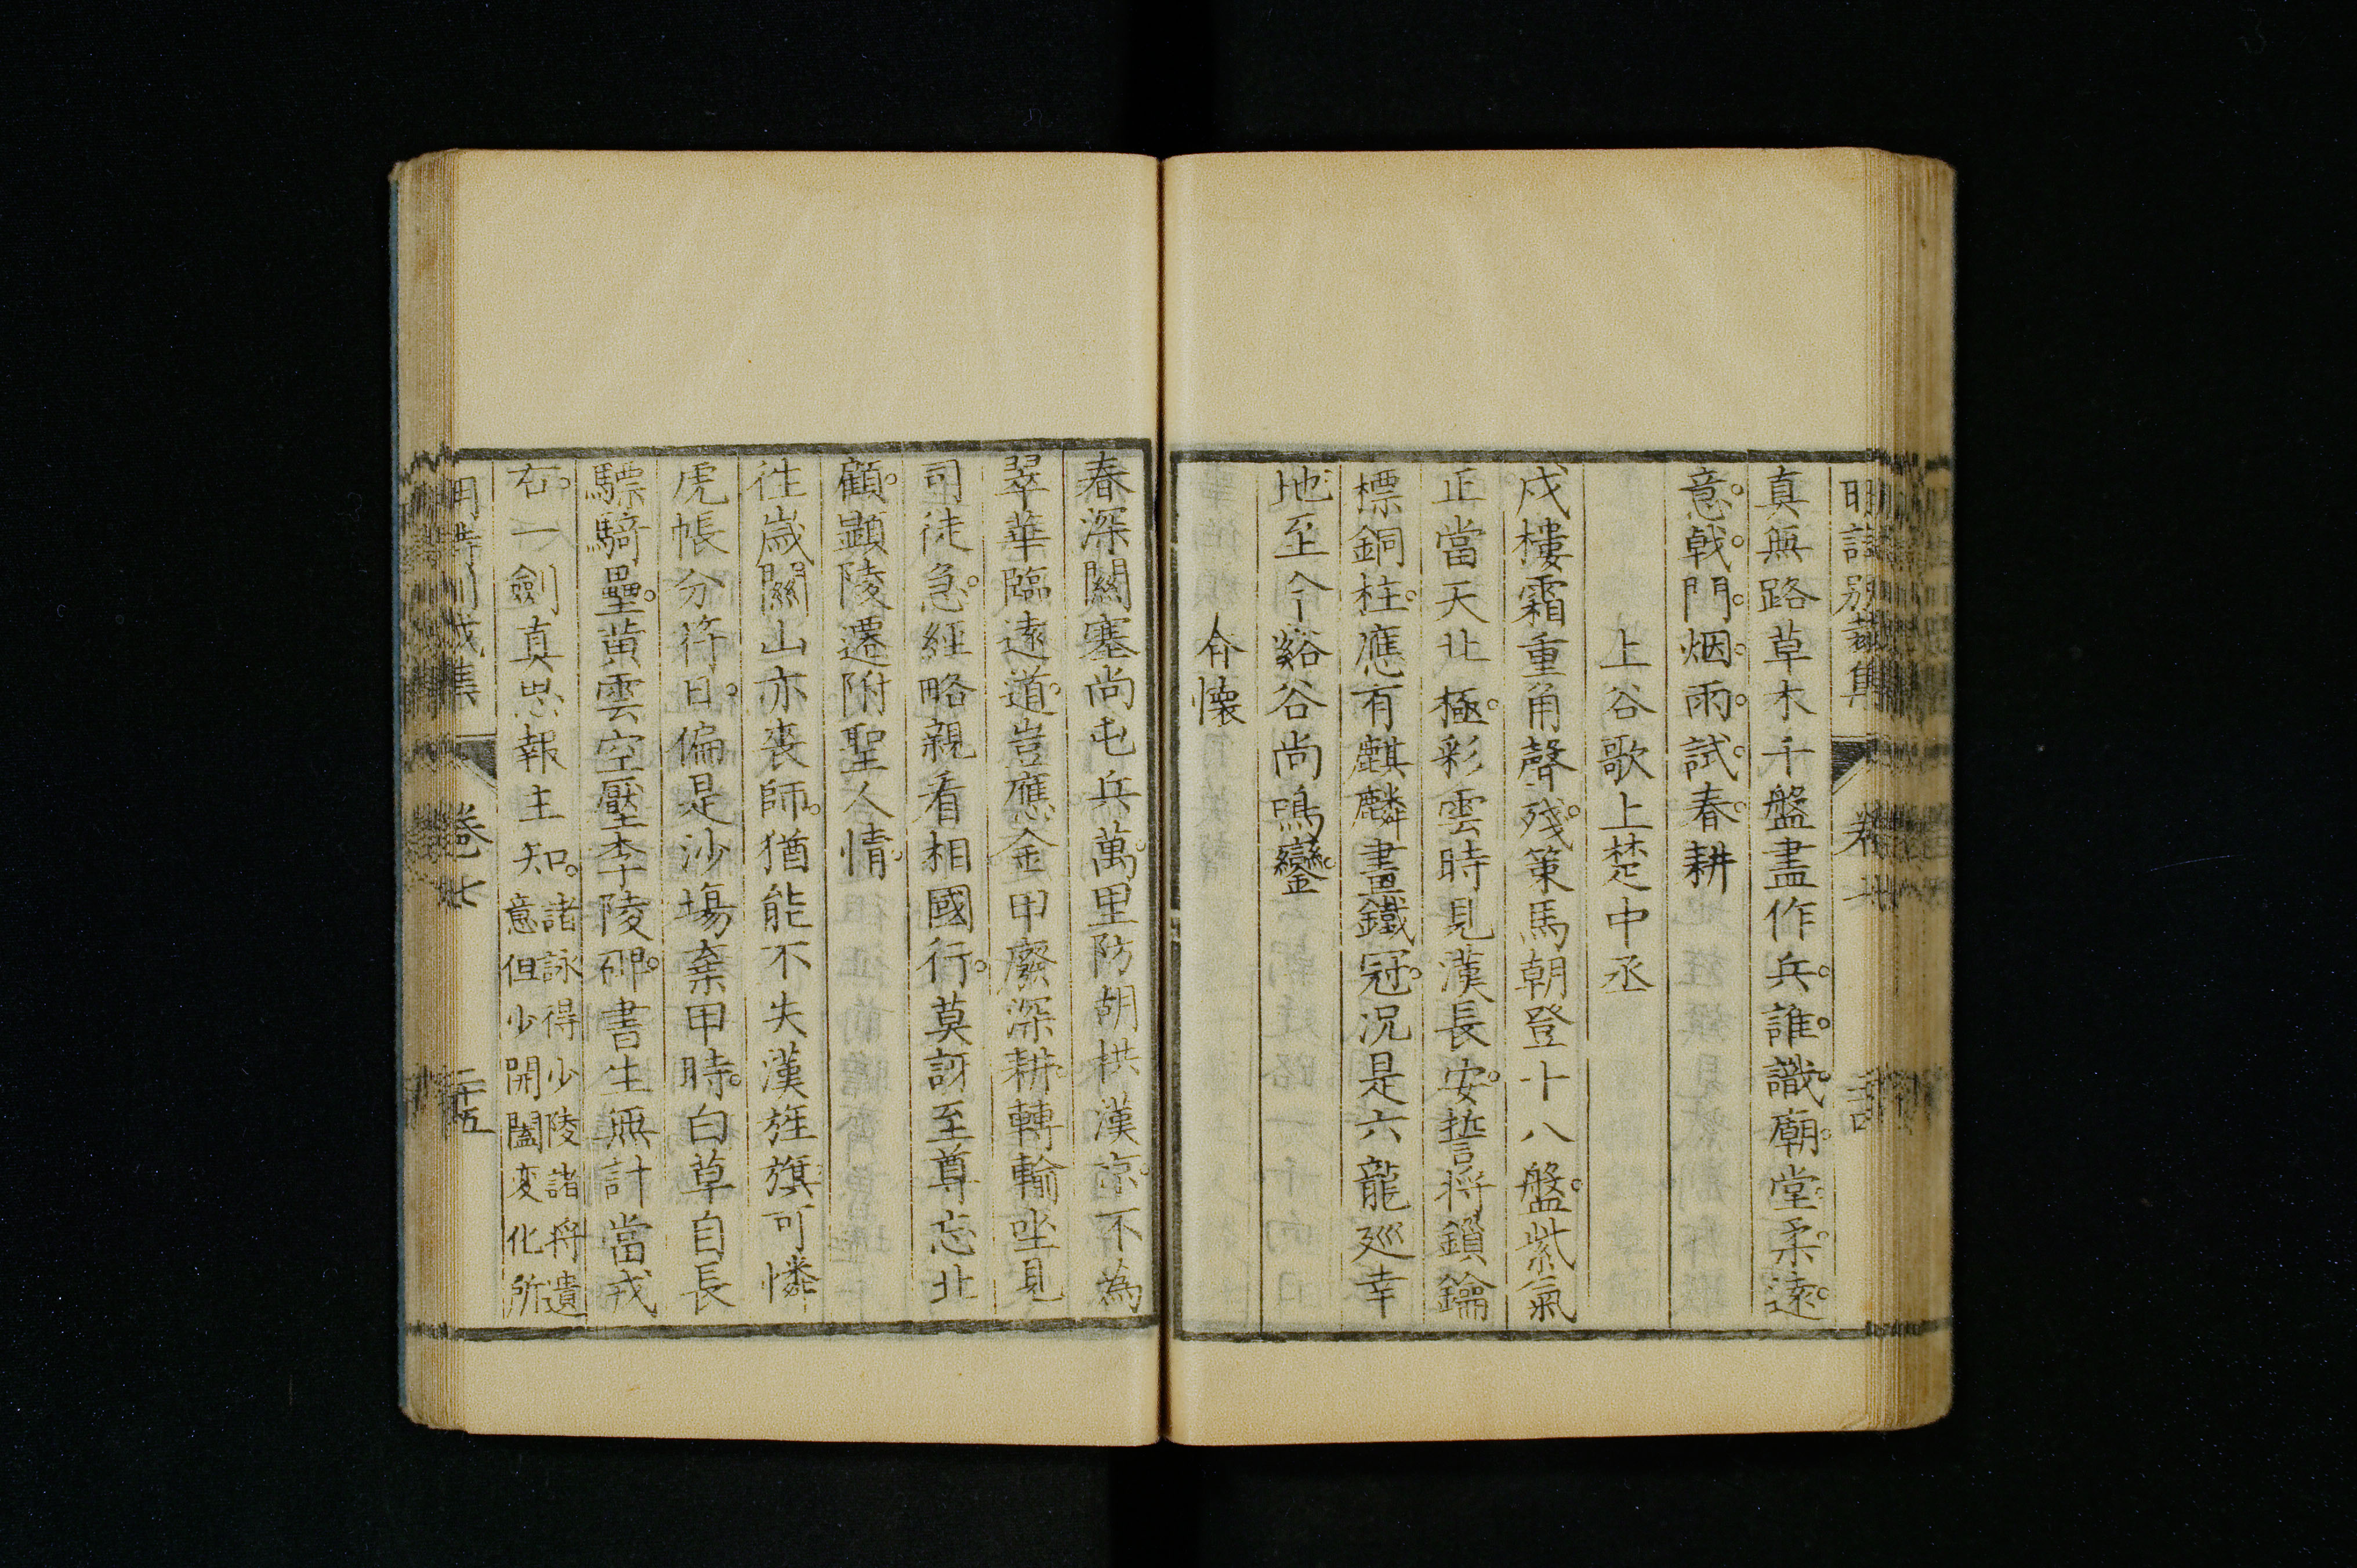 明詩別裁集 卷七 二十四
真無路草木千盤盡作兵。誰。識。廟。堂。柔。遠。
意。戟。門。烟。雨。試。春。耕
上谷歌上楚中丞
戍樓霜重角聲殘。策馬朝登十八盤。紫氣
正當天北極。彩雲時見漢長安。誓將鎖鑰
標銅柱。應有麒麟畫鐵冠。況是六龍廵幸
地至今谿谷尚鳴鑾。
今懷
春深關塞尚屯兵。萬里防胡拱漢京。不為
翠華臨遠道。豈應金甲廢深耕。轉輸坐見
司徒急。經略親看相國行。莫訝至尊忘北
顧。顯陵遷附聖人情。
往歲關山亦喪師。猶能不失漢旌旗。可憐
虎帳分符日。偏是沙場棄甲時。白草自長
驃騎壘。黄雲空壓李陵碑。書生無計當戎
右。一劍真思報主知。諸詠得少陵諸將遺
意但少開闔変化所
明詩別裁集 卷七 二十五